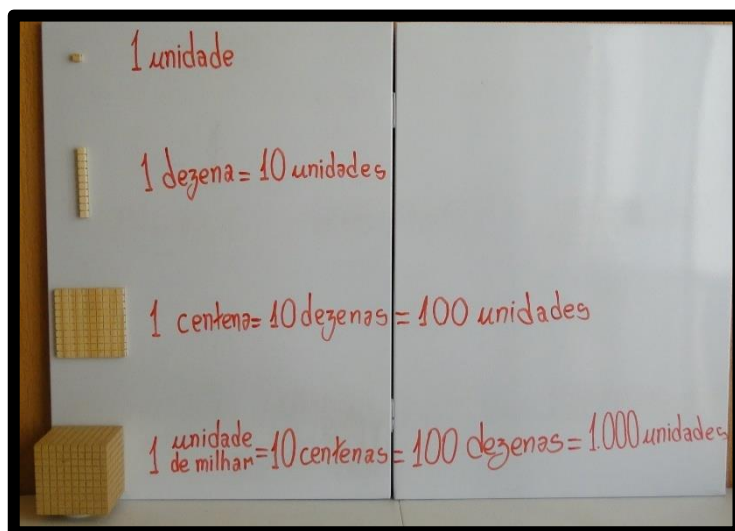 1 unidade
1 dezena = 10 unidades
1 centena = 10 dezenas = 100 unidades
1 unidade de milhar = 10 centenas = 100 dezenas = 1.000 unidades